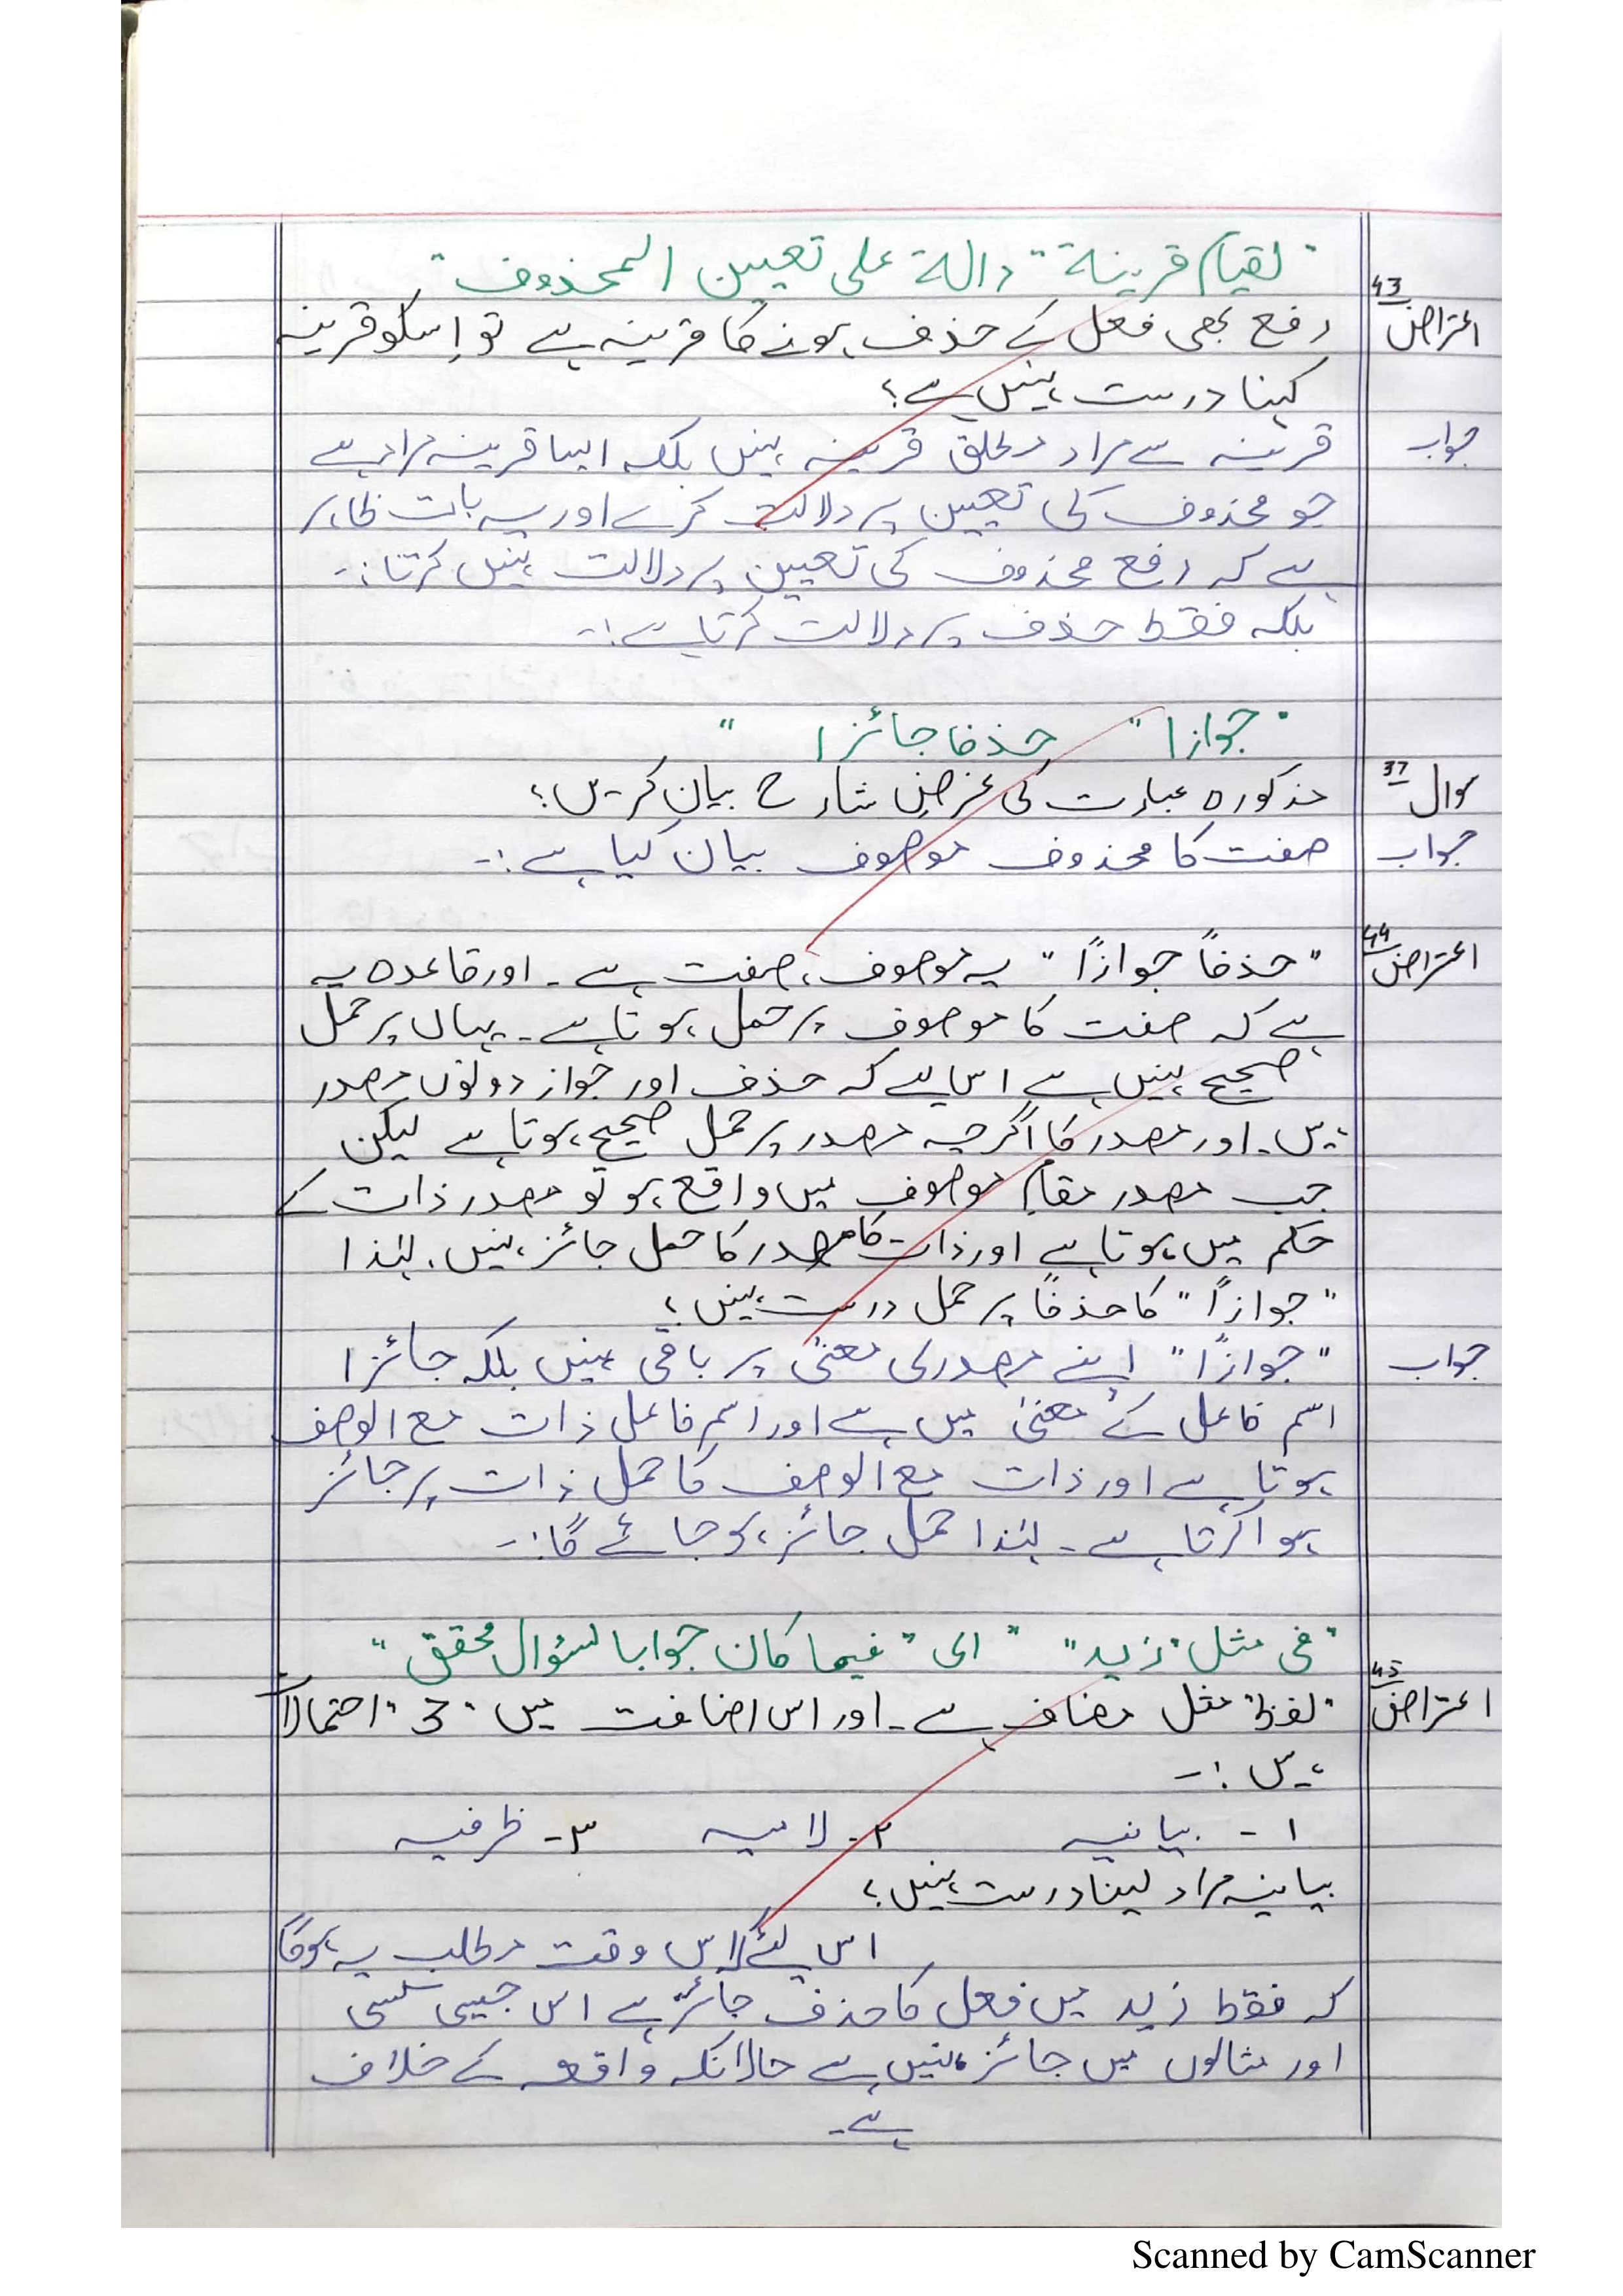 "لقیام قرینۃ" دالۃ علی تعیین المحذوف"
اعتراض 43 رفع بھی فعل کے حذف ہونے کا قرینہ ہے تو اِسکو قرینہ
کہنا درست نہیں ہے؟
جواب قرینہ سے مراد مطلق قرینہ نہیں بلکہ ایسا قرینہ مراد ہے
جو محذوف کی تعیین پر دلالت کرے اور یہ بات ظاہر
ہے کہ رفع محذوف کی تعیین پر دلالت نہیں کرتا:-
بلکہ فقط حذف پر دلالت کرتا ہے:-
"جوازا" حذفا جائزا "
سوال 37 مذکورہ عبارت کی غرضِ شارح بیان کریں؟
جواب صفت کا محذوف موصوف بیان کیا ہے:-
اعتراض 44 "حذفاً جوازاً" یہ موصوف، صفت ہے۔ اور قاعدہ یہ
ہے کہ صفت کا موصوف پر حمل ہوتا ہے۔ یہاں پر حمل
صحیح نہیں ہے اس لیے کہ حذف اور جواز دونوں مصدر
ہیں۔ اور مصدر کا اگرچہ مصدر پر حمل صحیح ہوتا ہے لیکن
جب مصدر مقامِ موصوف میں واقع ہو تو مصدر ذات کے
حکم میں ہوتا ہے اور ذات کا مصدر کا حمل جائز نہیں، لہٰذا
"جوازاً" کا حذفاً پر حمل درست نہیں؟
جواب "جوازاً" اپنے مصدری معنیٰ پر باقی نہیں بلکہ جائزا
اسم فاعل کے معنیٰ میں ہے اور اسم فاعل ذات مع الوصف
ہوتا ہے اور ذات مع الوصف کا حمل ذات پر جائز
ہوا کرتا ہے۔ لہٰذا حمل جائز ہو جائے گا:-
"فی مثل "زید" " ای "فیما کان جوابا لسؤال محقق"
اعتراض 45 "لفظ" مثل مضاف ہے۔ اور اس اضافت میں "3" احتمالات
ہیں:-
۱- بیانیہ ۲- لامیہ ۳- ظرفیہ
بیانیہ مراد لینا درست نہیں؟
اس لئے اس وقت مطلب یہ ہوگا
کہ فقط زید میں فعل کا حذف جائز ہے اس جیسی کسی
اور مثالوں میں جائز نہیں ہے حالانکہ واقعہ کے خلاف
ہے۔
Scanned by CamScanner